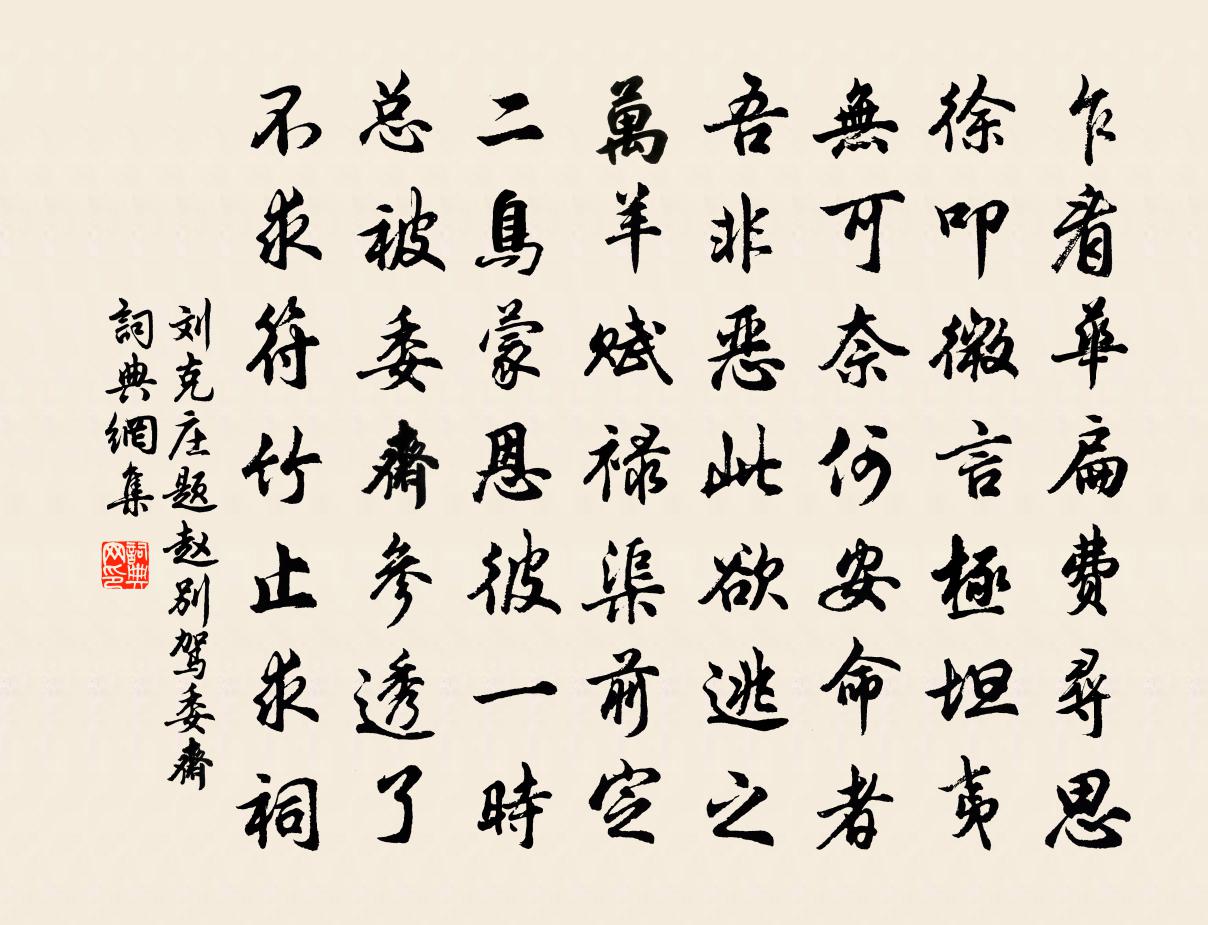 乍看華扁費尋思
徐叩微言極坦夷
無可奈何安命者
吾非惡此欲逃之
萬羊賦禄渠前定
二鳥蒙恩彼一時
总被委齋參透了
不求符竹止求祠
刘克庄題赵别駕委齋
詞典網集
詞典
网印